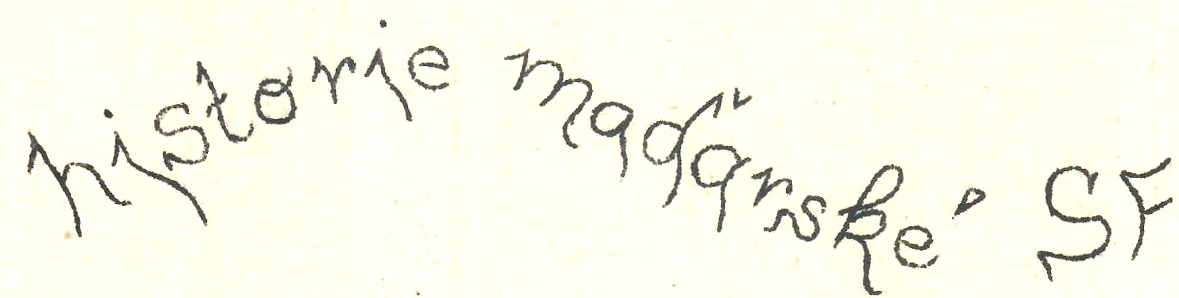 historie maďarské SF